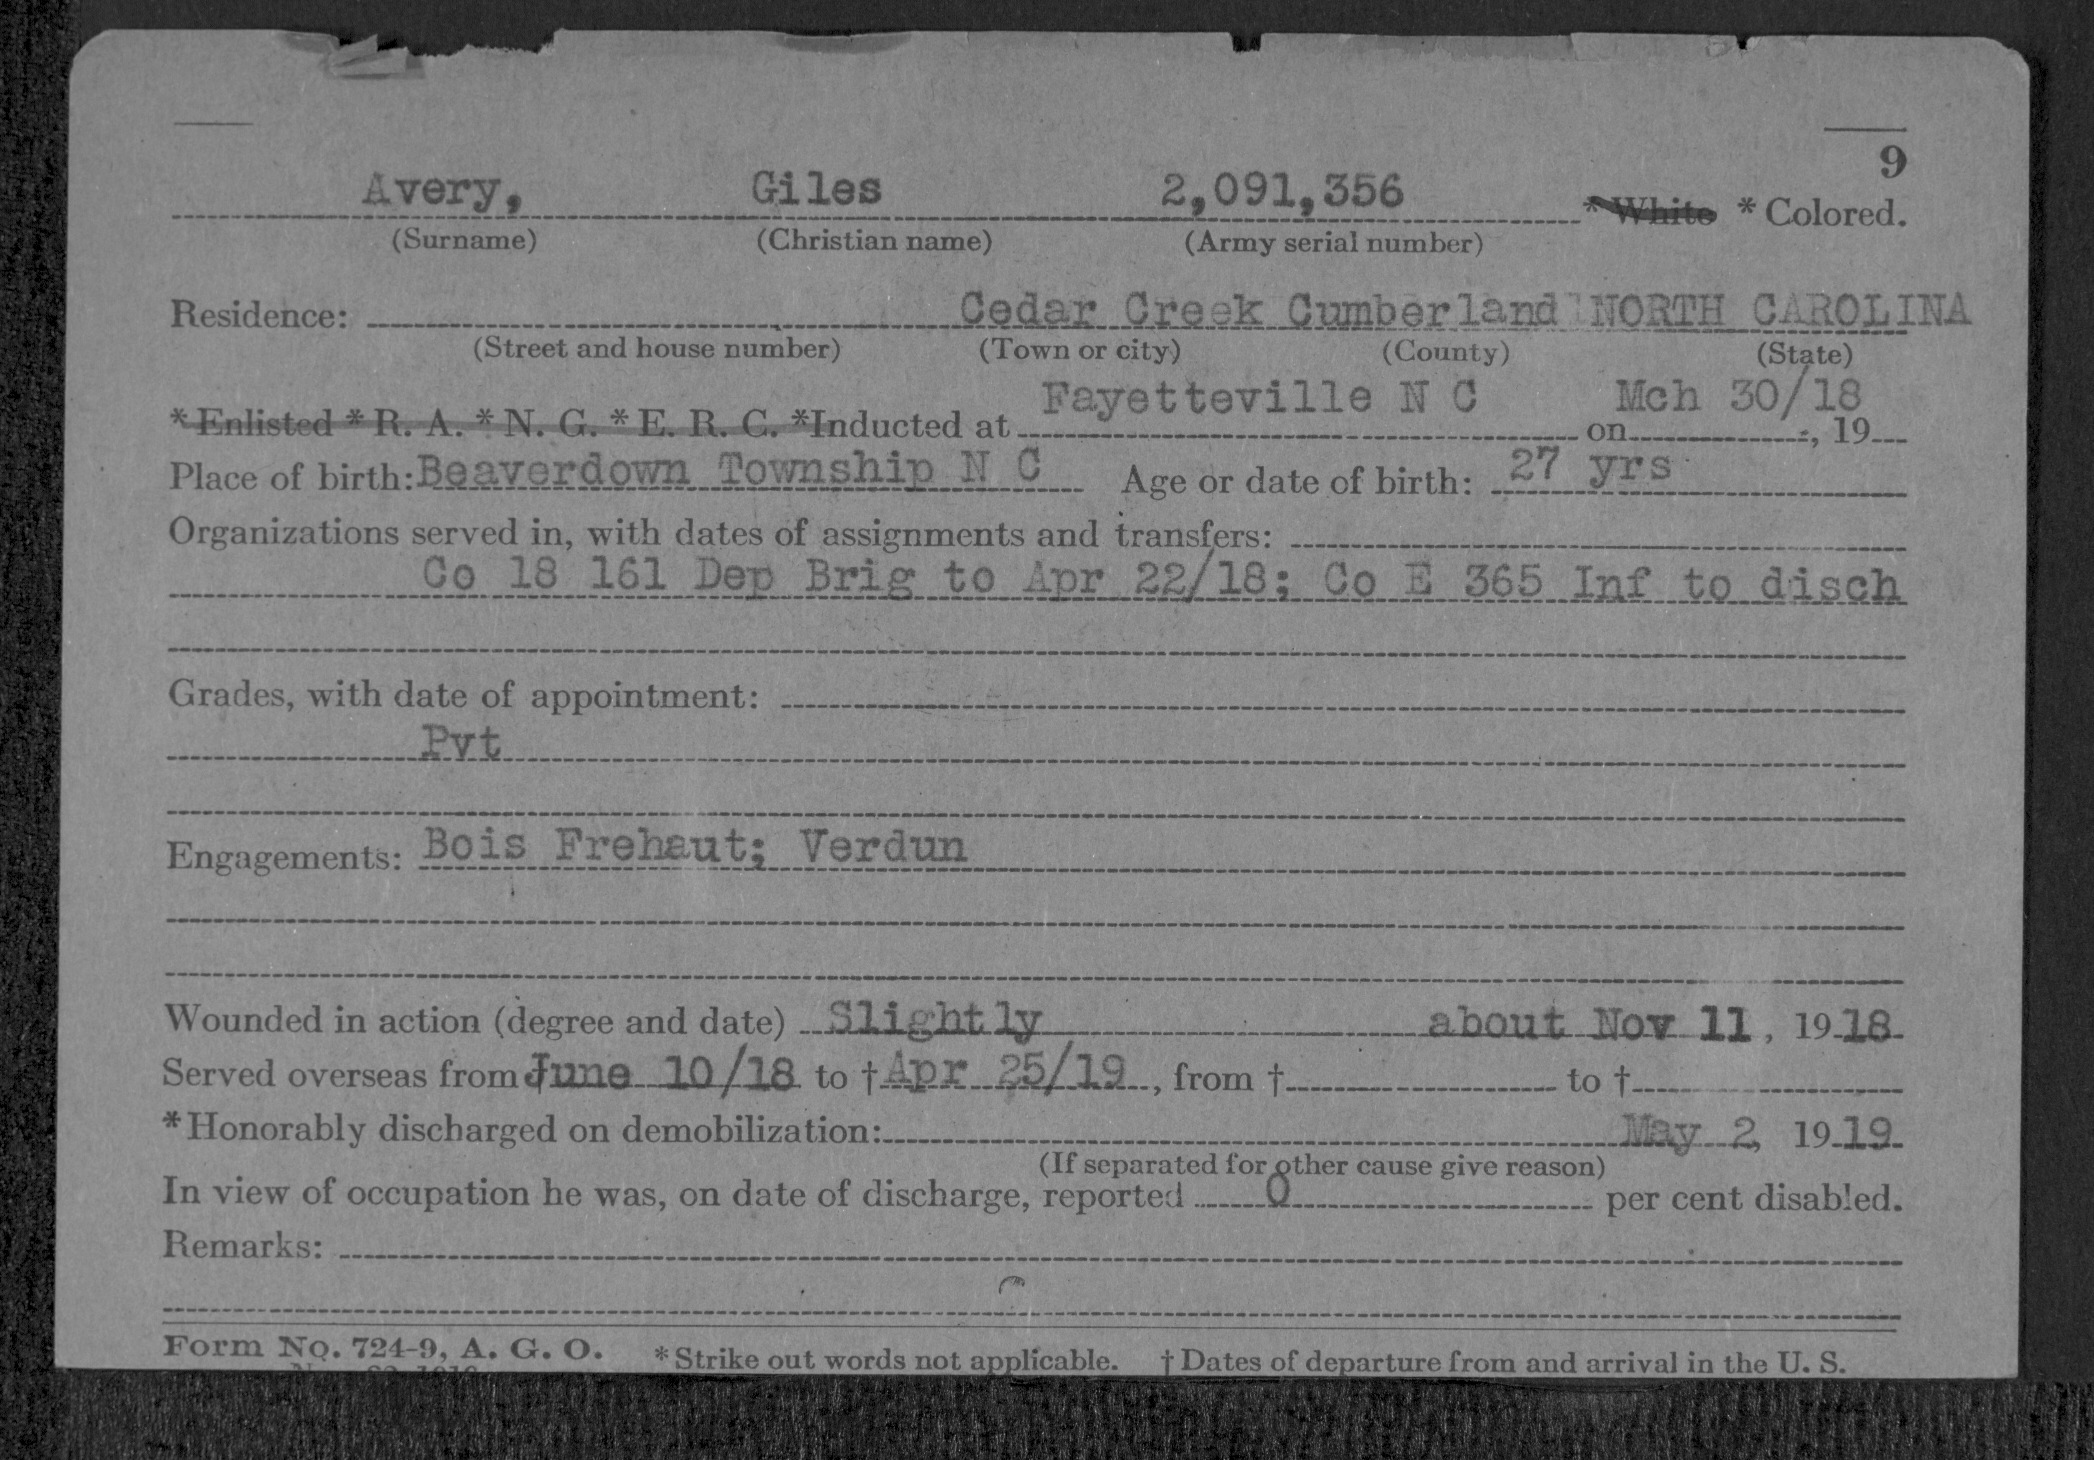 9
Avery, Giles 2,091,356 * White * Colored.
(Surname) (Christian name) (Army serial number)
Residence: Cedar Creek Cumberland NORTH CAROLINA
(Street and house number) (Town or city) (County) (State)
* Enlisted * R. A. * N. G. * E. R. C. *Inducted at Fayetteville N C on Mch 30/18, 19
Place of birth: Beaverdown Township N C Age or date of birth: 27 yrs
Organizations served in, with dates of assignments and transfers:
Co 18 161 Dep Brig to Apr 22/18; Co E 365 Inf to disch
Grades, with date of appointment:
Pvt
Engagements: Bois Frehaut; Verdun
Wounded in action (degree and date) Slightly about Nov 11, 1918
Served overseas from June 10/18 to † Apr 25/19, from † to †
*Honorably discharged on demobilization: May 2, 1919
(If separated for other cause give reason)
In view of occupation he was, on date of discharge, reported 0 per cent disabled.
Remarks:
Form No. 724-9, A. G. O. * Strike out words not applicable. † Dates of departure from and arrival in the U. S.